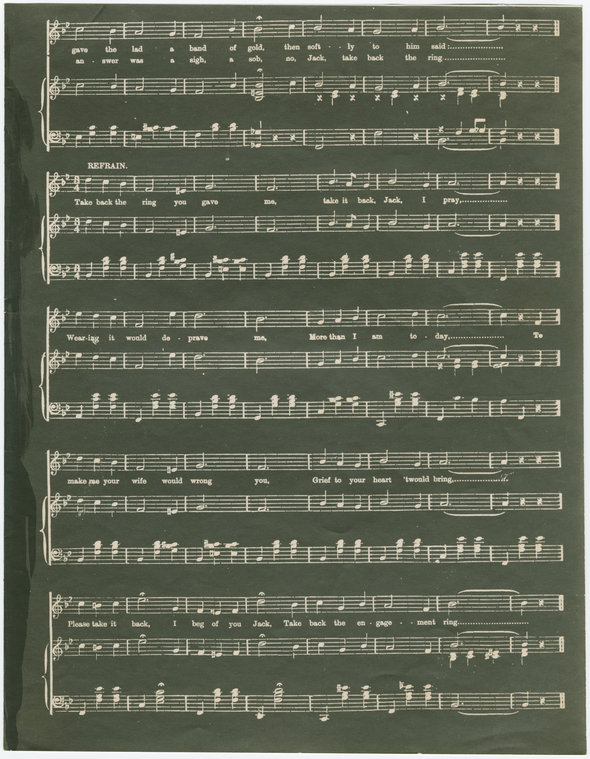 gave the lad a band of gold, then soft - - ly to him said:...............
an - swer was a sigh, a sob, no, Jack, take back the ring...............
REFRAIN.
Take back the ring you gave me, take it back, Jack, I pray,...............
Wear-ing it would de - prave me, More than I am to - day,............... To
make me your wife would wrong you, Grief to your heart 'twould bring,...............
Please take it back, I beg of you Jack, Take back the en - gage - - ment ring...............